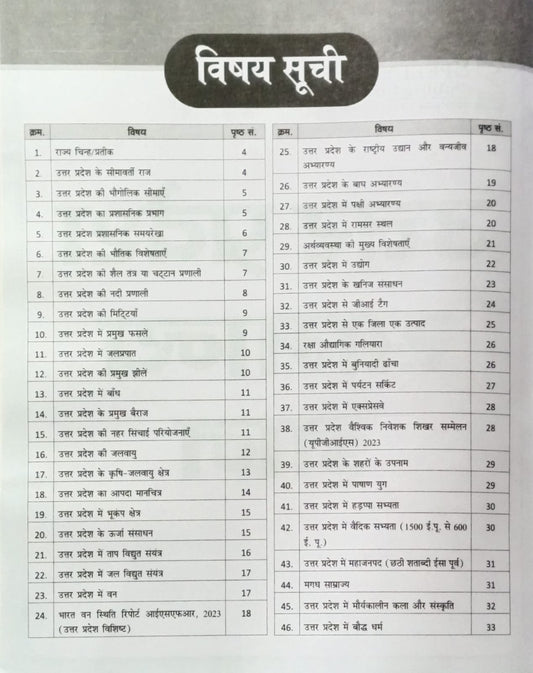 विषय सूची
क्रम. विषय पृष्ठ सं.
1. राज्य चिन्ह/प्रतीक 4
2. उत्तर प्रदेश के सीमावर्ती राज 4
3. उत्तर प्रदेश की भौगोलिक सीमाएँ 5
4. उत्तर प्रदेश का प्रशासनिक प्रभाग 5
5. उत्तर प्रदेश प्रशासनिक समयरेखा 6
6. उत्तर प्रदेश की भौतिक विशेषताएँ 7
7. उत्तर प्रदेश की शैल तंत्र या चट्टान प्रणाली 7
8. उत्तर प्रदेश की नदी प्रणाली 8
9. उत्तर प्रदेश की मिट्टियाँ 9
10. उत्तर प्रदेश में प्रमुख फसलें 9
11. उत्तर प्रदेश में जलप्रपात 10
12. उत्तर प्रदेश की प्रमुख झीलें 10
13. उत्तर प्रदेश में बाँध 11
14. उत्तर प्रदेश के प्रमुख बैराज 11
15. उत्तर प्रदेश की नहर सिंचाई परियोजनाएँ 11
16. उत्तर प्रदेश की जलवायु 12
17. उत्तर प्रदेश के कृषि-जलवायु क्षेत्र 13
18. उत्तर प्रदेश का आपदा मानचित्र 14
19. उत्तर प्रदेश में भूकंप क्षेत्र 15
20. उत्तर प्रदेश के ऊर्जा संसाधन 15
21. उत्तर प्रदेश में ताप विद्युत संयंत्र 16
22. उत्तर प्रदेश में जल विद्युत संयंत्र 17
23. उत्तर प्रदेश में वन 17
24. भारत वन स्थिति रिपोर्ट आईएसएफआर, 2023 18
(उत्तर प्रदेश विशिष्ट)
क्रम. विषय पृष्ठ सं.
25. उत्तर प्रदेश के राष्ट्रीय उद्यान और वन्यजीव 18
अभ्यारण्य
26. उत्तर प्रदेश के बाघ अभ्यारण्य 19
27. उत्तर प्रदेश में पक्षी अभ्यारण्य 20
28. उत्तर प्रदेश में रामसर स्थल 20
29. अर्थव्यवस्था की मुख्य विशेषताएँ 21
30. उत्तर प्रदेश में उद्योग 22
31. उत्तर प्रदेश के खनिज संसाधन 23
32. उत्तर प्रदेश से जीआई टैग 24
33. उत्तर प्रदेश से एक जिला एक उत्पाद 25
34. रक्षा औद्योगिक गलियारा 26
35. उत्तर प्रदेश में बुनियादी ढाँचा 26
36. उत्तर प्रदेश में पर्यटन सर्किट 27
37. उत्तर प्रदेश में एक्सप्रेसवे 28
38. उत्तर प्रदेश वैश्विक निवेशक शिखर सम्मेलन 28
(यूपीजीआईएस) 2023
39. उत्तर प्रदेश के शहरों के उपनाम 29
40. उत्तर प्रदेश में पाषाण युग 29
41. उत्तर प्रदेश में हड़प्पा सभ्यता 30
42. उत्तर प्रदेश में वैदिक सभ्यता (1500 ई.पू. से 600 30
ई. पू.)
43. उत्तर प्रदेश में महाजनपद (छठी शताब्दी ईसा पूर्व) 31
44. मगध साम्राज्य 31
45. उत्तर प्रदेश में मौर्यकालीन कला और संस्कृति 32
46. उत्तर प्रदेश में बौद्ध धर्म 33